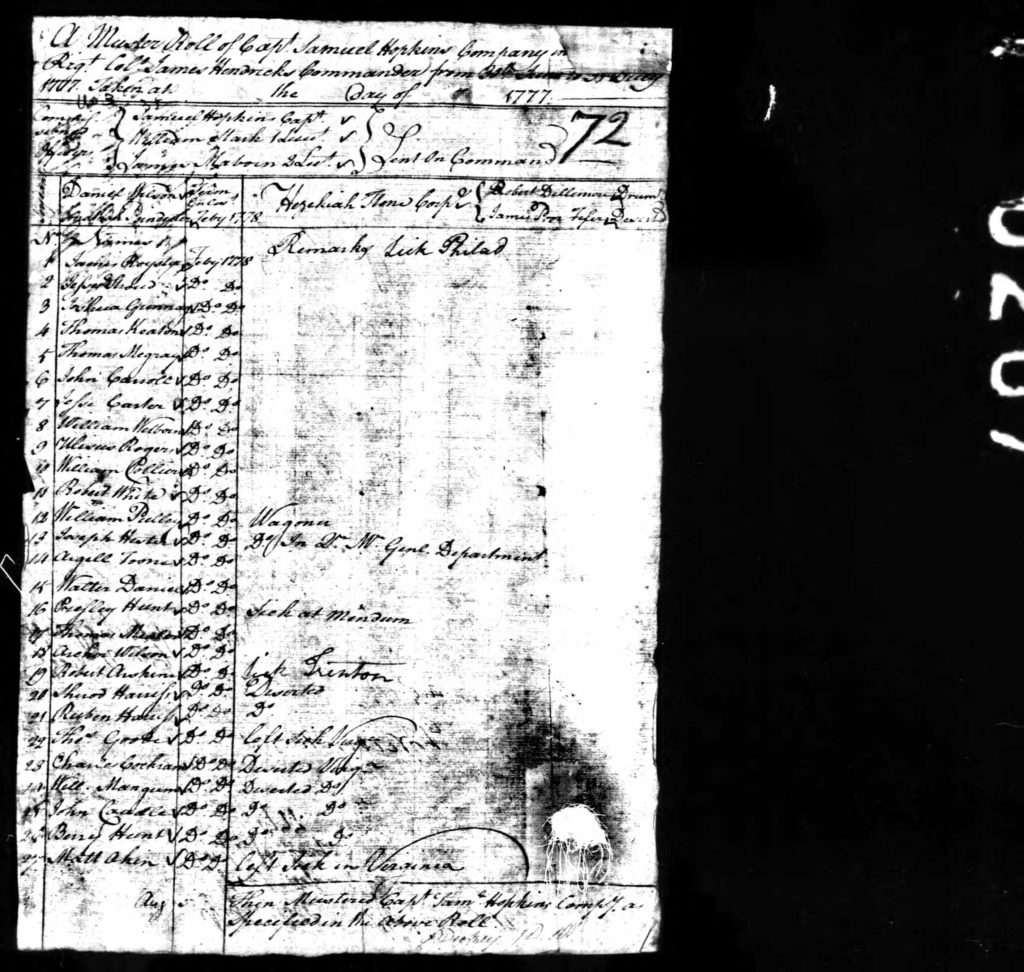 A Muster Roll of Capt. Samuel Hopkins Company in
Regt. Colo. James Hendricks Commander from
1777. Taken at the Day of 1777.
Samuel Hopkins Capt.
William Stark 1 Lieut
James Mabein 2 Lieut Sent On Command
72
Daniel Wilson
Feby 1778
Hezekiah Stone Corpl
Robert Dillimore Drumr
James Fifer Deserted
No. Names
Remarks Sick Philad
1 James Royster Feby 1778
2 Do Do
3 Joshua Grinnan Do Do
4 Thomas Keaton Do Do
5 Thomas Megraw Do Do
6 John Carroll Do Do
7 Jesse Carter Do Do
8 William Welborn Do Do
9 Ulisus Rogers Do Do
10 William Collier Do Do
11 Robert White Do Do
12 William Do Do Wagoner
13 Joseph Hester Do Do Do In Qr. Mr. Genl. Department
14 Argill Toone Do Do
15 Walter Daniel Do Do
16 Presley Hunt Do Do Sick at Mindum
17 Thomas Do Do
18 Archer Wilson Do Do
19 Robert Arskine Do Do Sick Trenton
20 Sherod Harriss Do Do Deserted
21 Reuben Harriss Do Do Do
22 Thos. Goode Do Do Left Sick
23 Charles Cochran Do Do Deserted Virga
24 Will. Mangum Do Do Deserted Do
25 John Caudle Do Do Do Do
26 Berry Hunt Do Do Do Do
27 Matt Aken Do Do Left Sick in Verginia
Aug 5
Then Mustered Capt. Saml Hopkins Compy. as
Specified in the Above Roll.
0201